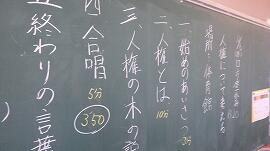 人権について考えよう
場所 体育館
一、始めのあいさつ 2分
二、人権とは 10分
三、人権の木の説
四 合唱 5分
350
五 終わりの言葉